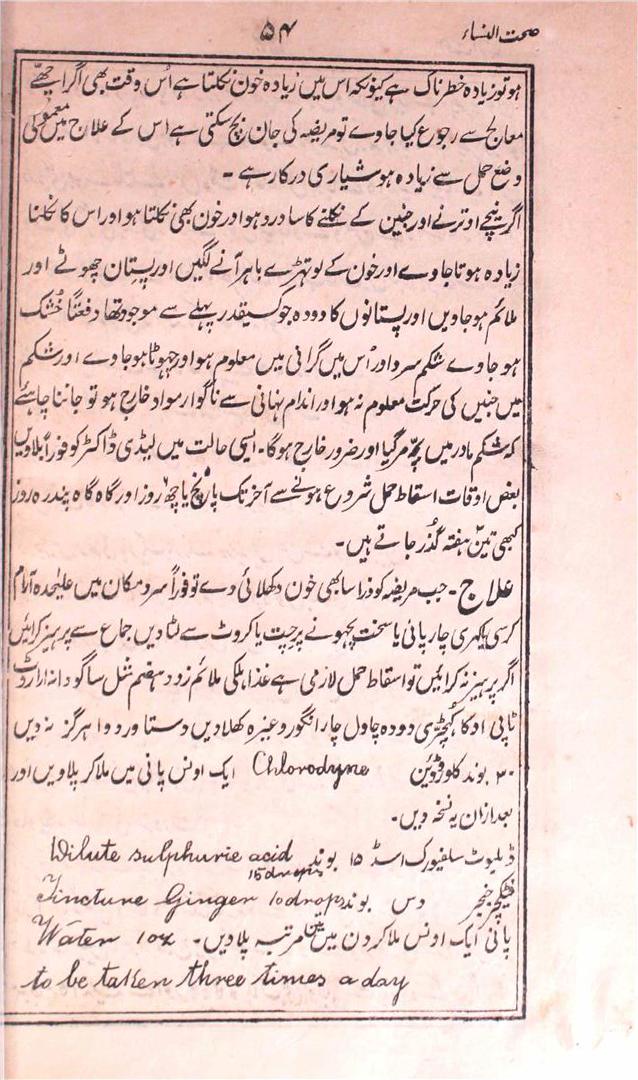 صحت النساء
۵۴
ہو تو زیادہ خطرناک ہے کیونکہ اس میں زیادہ خون نکلتا ہے اُس وقت بھی اگر اچھے
معالج سے رجوع کیا جاوے تو مریضہ کی جان بچ سکتی ہے اس کے علاج میں معمولی
وضع حمل سے زیادہ ہوشیاری درکار ہے ۔
اگر نیچے اوترنے اور جنین کے نکلنے کا سا درد ہو اور خون بھی نکلتا ہو اور اس کا نکلنا
زیادہ ہوتا جاوے اور خون کے لوتھڑے باہر آنے لگیں اور پستان چھوٹے اور
ملائم ہو جاویں اور پستانوں کا دودہ جو کسیقدر پہلے سے موجود تھا دفعتاً خُشک
ہو جاوے شکم سرد اور اُس میں گرانی میں معلوم ہو اور چھوٹا ہو جاوے اور شکم
میں جنیں کی حرکت معلوم نہ ہو اور اندام نہانی سے ناگوار مواد خارج ہو تو جاننا چاہئے
کہ شکم مادر میں بچہ مر گیا اور ضرور خارج ہوگا۔ ایسی حالت میں لیڈی ڈاکٹر کو فوراً بلاویں
بعض اوقات اسقاط حمل شروع ہونے سے آخر تک پانچ یا چھ روز اور گاہ گاہ پندرہ روز
کبھی تین ہفتہ گذر جاتے ہیں۔
علاج ۔ جب مریضہ کو ذرا سا بھی خون دکھلائی دے تو فوراً سرد مکان میں علیحدہ آرام
کرسی یا کھری چارپائی یا سخت بچھونے پر چت یا کروٹ سے لٹا دیں جماع سے پرہیز کرائیں
اگر پرہیز نہ کرائیں تو اسقاط حمل لازمی ہے غذا ہلکی ملائم زود ہضم مثل ساگودانہ اراروٹ
ٹاپی اوکا کھچڑی دودہ چاول چار انگور وغیرہ کھلا دیں دستاور دوا ہرگز نہ دیں
۳۰ بوند کلوروڈین Chlorodyne ایک اونس پانی میں ملا کر پلاویں اور
بعد ازان یہ نسخہ دیں۔
ڈیلیوٹ سلفیورک اسڈ ۱۵ بوند Dilute sulphuric acid 15 drops
ٹنکچر جنجر دس بوند Tincture Ginger 10 drops
پانی ایک اونس ملا کر دن میں تین مرتبہ پلا دیں۔ Water 1oz
to be taken three times a day